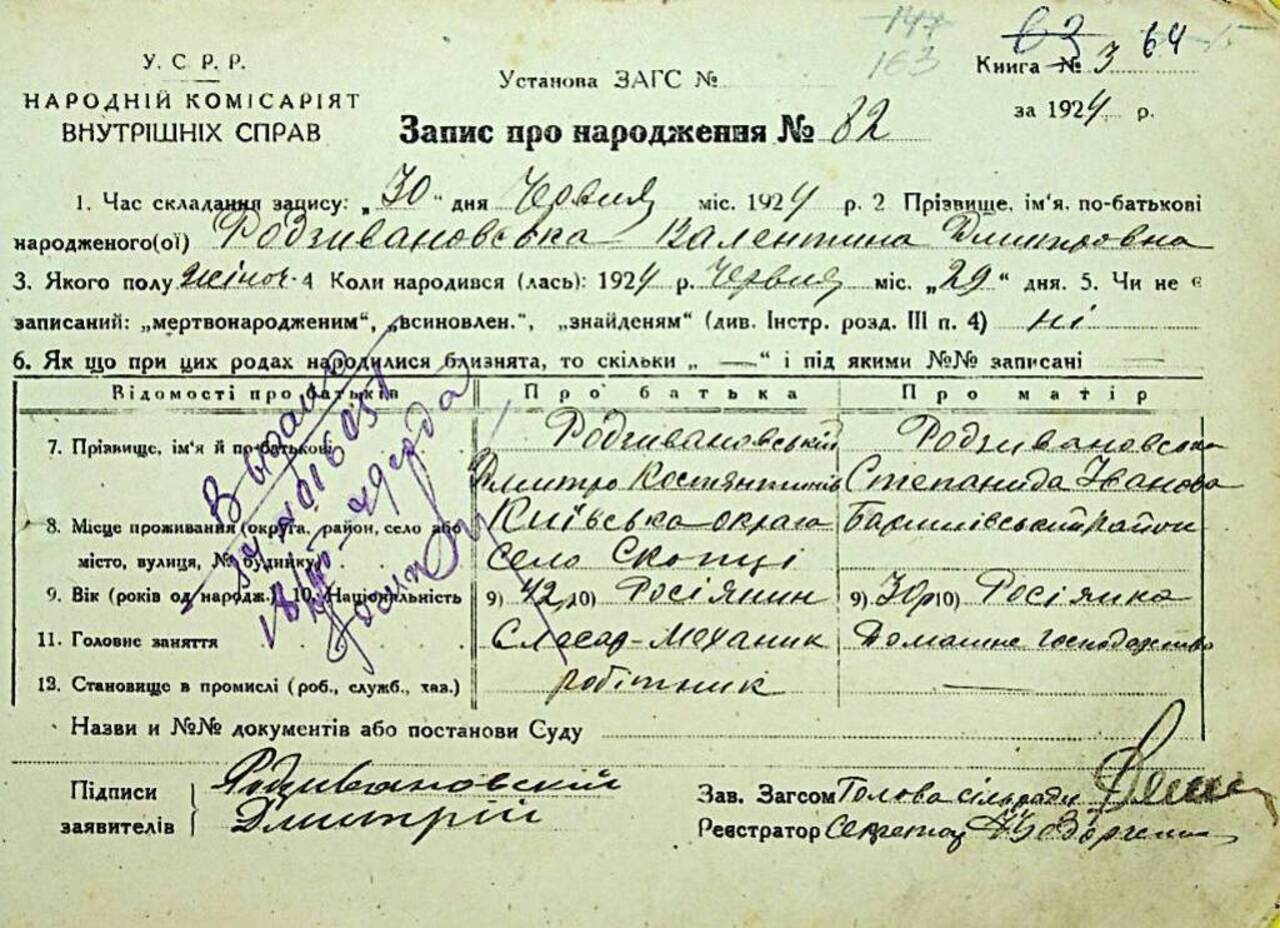 147
163
63
64
У. С. Р. Р.
НАРОДНІЙ КОМІСАРІЯТ
ВНУТРІШНІХ СПРАВ
Установа ЗАГС №
Книга № 3
за 1924 р.
Запис про народження № 82
1. Час складання запису: „30" дня Червня міс. 1924 р. 2 Прізвище, ім'я, по-батькові
народженого(ої) Родзивановська Валентина Дмитровна
3. Якого полу жіноч. 4 Коли народився (лась): 1924 р. Червня міс. „29" дня. 5. Чи не є
записаний: „мертвонародженим", „всиновлен.", „знайденям" (див. Інстр. розд. III п. 4) ні
6. Як що при цих родах народилися близнята, то скільки „ — " і під якими №№ записані —
Відомості про батьків Про батька Про матір
7. Прізвище, ім'я й по-батькові Родзивановський Родзивановська
Дмитро Костянтинів Степанида Іванова
8. Місце проживання (округа, район, село або Київська округа Баришівський район
місто, вулиця, № будинку) село Скопці
9. Вік (років од народж.) 10. Національність 9) 42 10) Росіянин 9) 30 10) Росіянка
11. Головне заняття Слесар-Механик Домашне господарство
12. Становище в промислі (роб., служб., хаз.) робітник —
Назви и №№ документів або постанови Суду
Підписи Родзивановский
заявителів Дмитрій
Зав. Загсом Голова сільради
Реєстратор Секретар